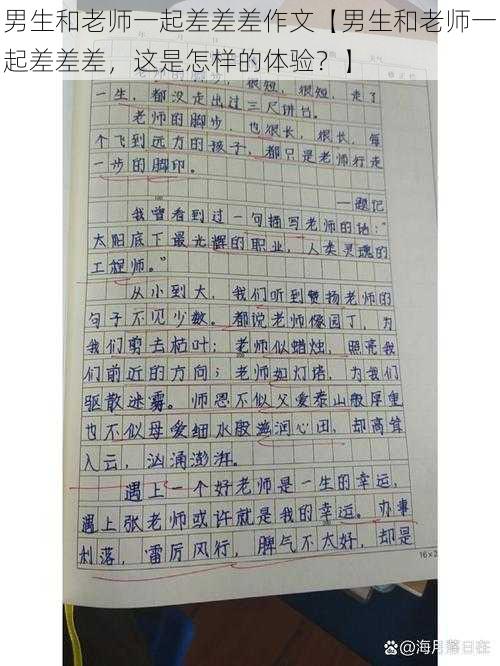 男生和老师一起差差差作文【男生和老师一
起差差差，这是怎样的体验？】
老师的脚步，很短，很短，走了
一生，都没走出过三尺讲台。
老师的脚步，也很长，很长，每
个飞到远方的孩子，都只是老师行走
一步的脚印。
——题记
我曾看到过一句描写老师的话：“
太阳底下最光辉的职业，人类灵魂的
工程师。”
从小到大，我们听到赞扬老师的
句子不见少数。都说老师像园丁，为
我们剪去枯叶；老师似蜡烛，照亮我
们前近的方向；老师如灯塔，为我们
驱散迷雾。师恩不似父爱泰山般厚重
也不似母爱细水般滋润心田，却高耸
入云，汹涌澎湃。
遇上一个好老师是一生的幸运，
遇上张老师或许就是我的幸运。办事
利落，雷厉风行，脾气不太好，却是
16×2
@海月